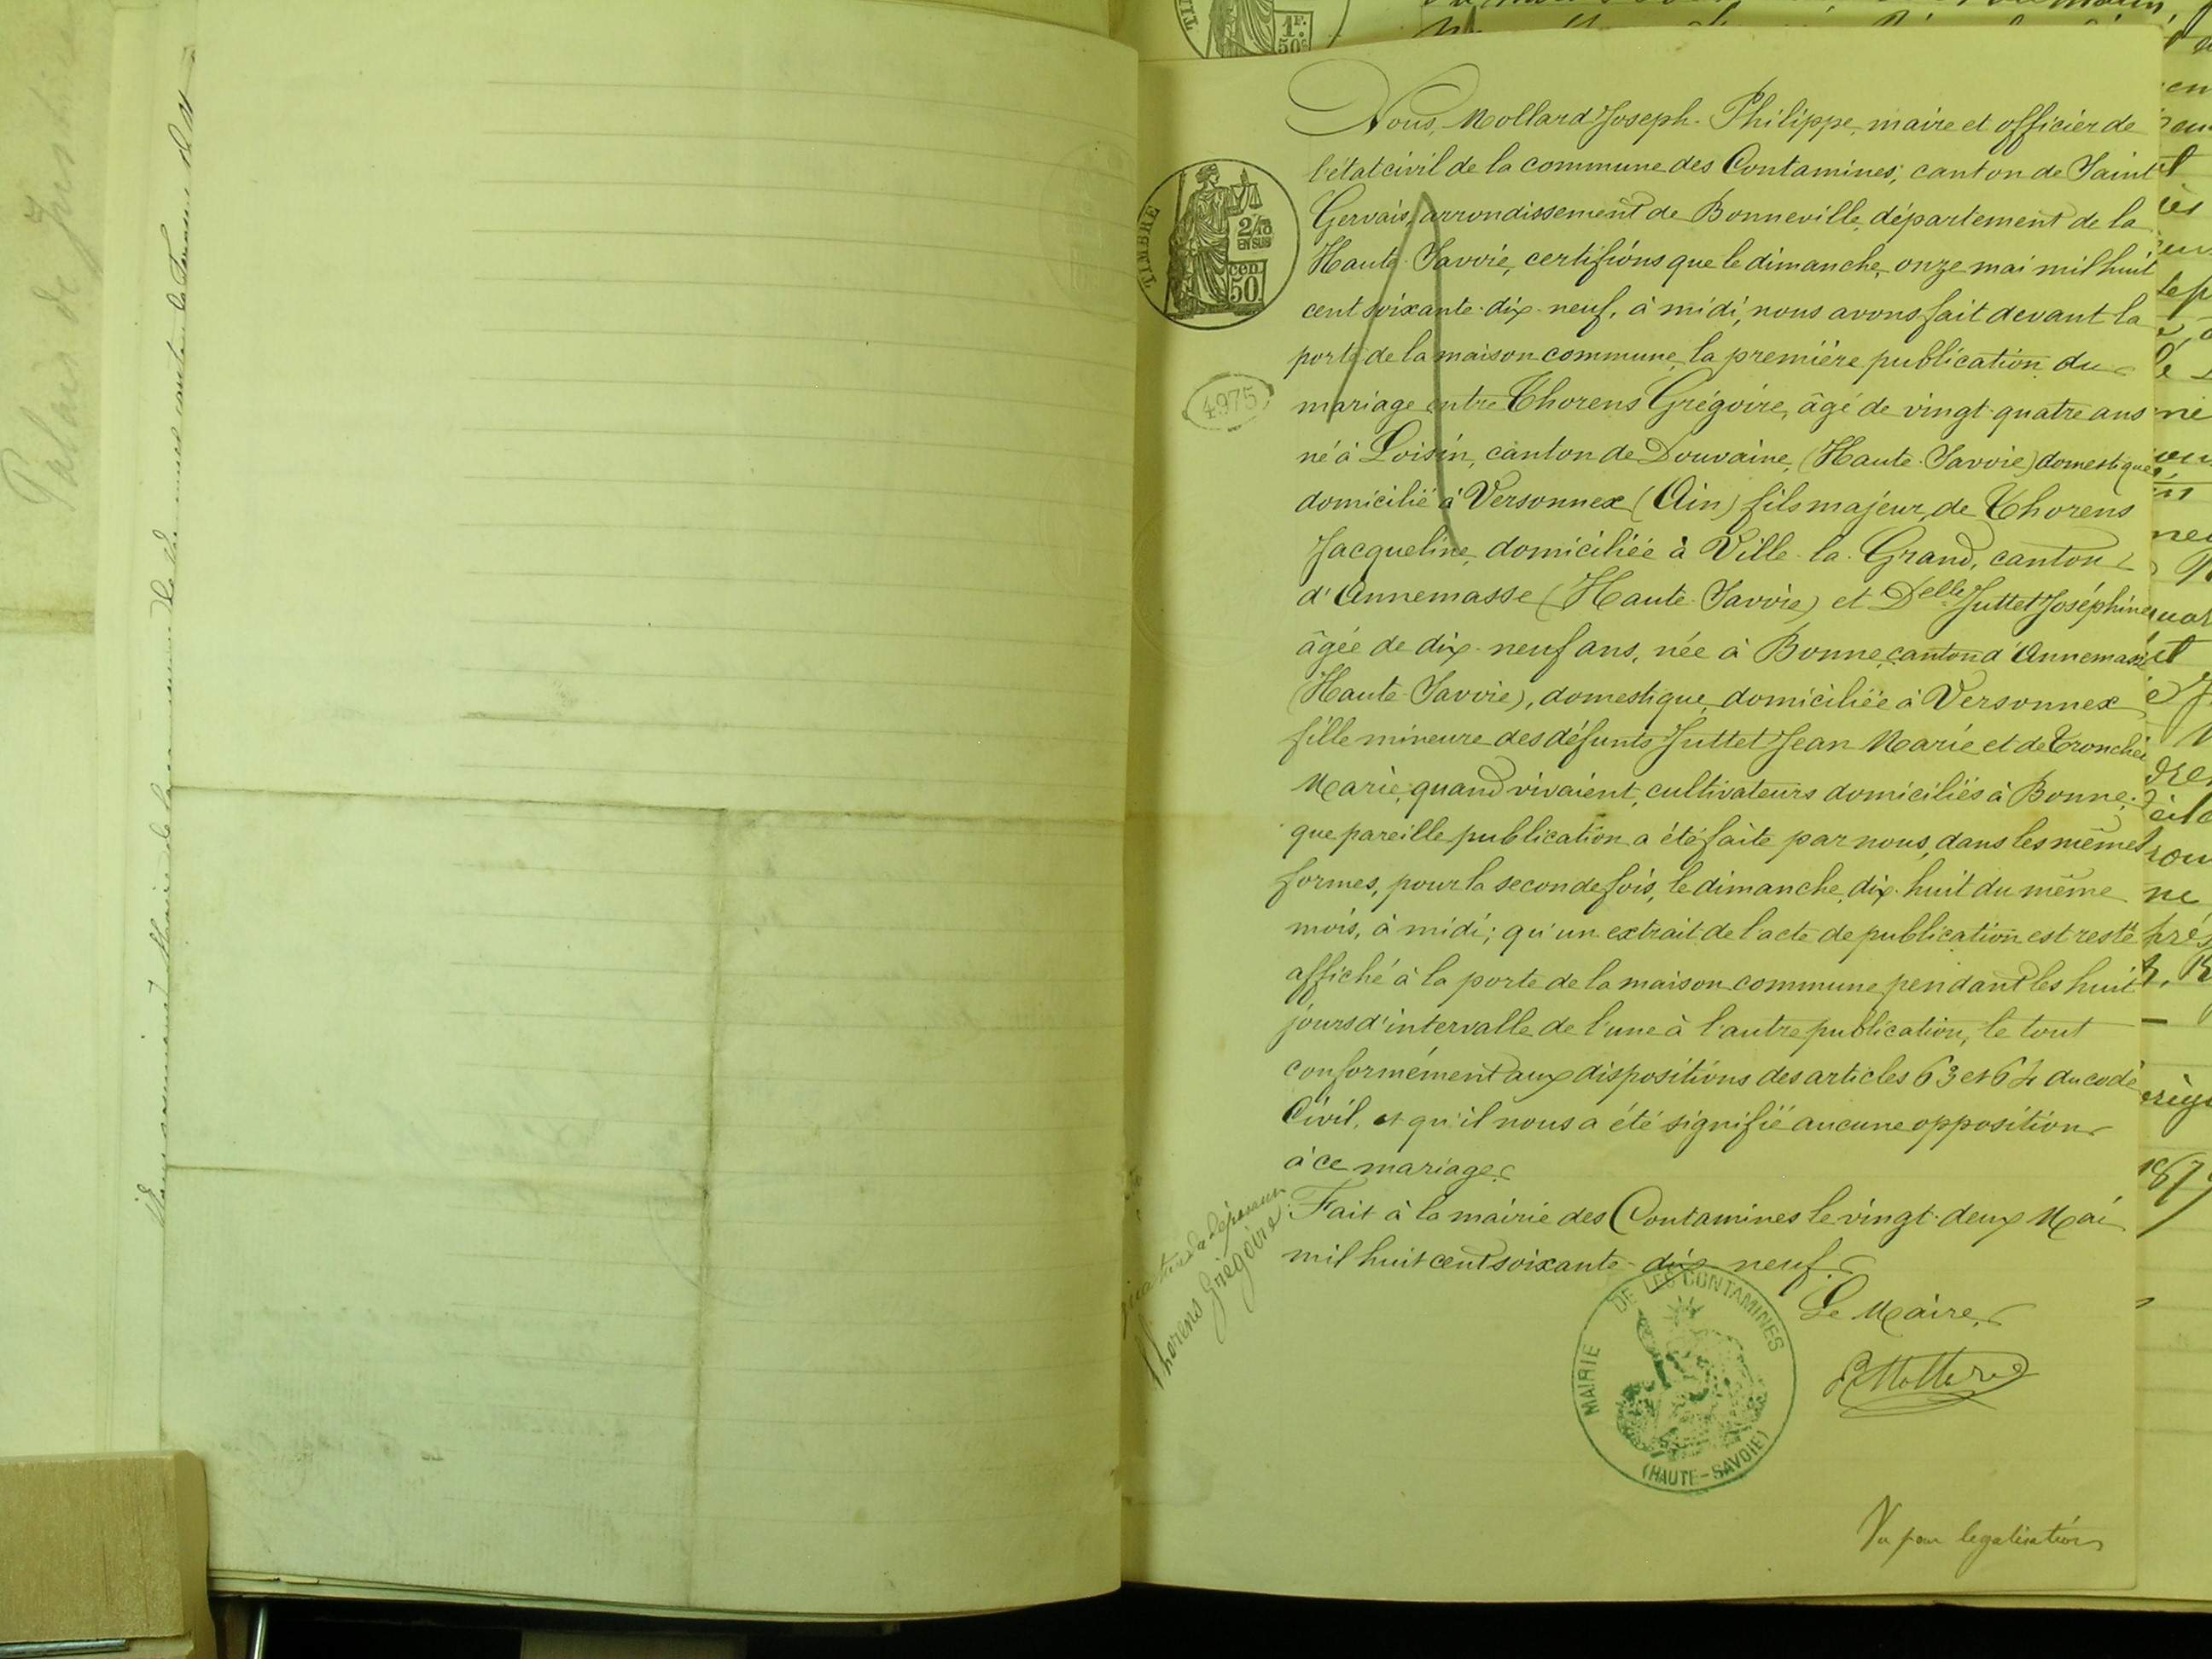 Palais de Justice
1F.
50c
Nous, Mollard Joseph-Philippe, maire et officier de
l'état civil de la commune des Contamines, canton de Saint
Gervais, arrondissement de Bonneville, département de la
Haute-Savoie, certifions que le dimanche, onze mai mil huit
cent soixante-dix-neuf, à midi, nous avons fait devant la
porte de la maison commune, la première publication du
mariage entre Thorens Grégoire, âgé de vingt-quatre ans
né à Loisin, canton de Douvaine, (Haute-Savoie) domestique
domicilié à Versonnex (Ain) fils majeur, de Thorens
Jacqueline, domiciliée à Ville-la-Grand, canton
d'Annemasse (Haute-Savoie) et Delle Juttet Joséphine
âgée de dix-neuf ans, née à Bonne, canton d'Annemasse
(Haute-Savoie), domestique, domiciliée à Versonnex
fille mineure des défunts Juttet Jean Marie et de Tronchet
Marie, quand vivaient, cultivateurs domiciliés à Bonne;
que pareille publication a été faite par nous, dans les mêmes
formes, pour la seconde fois, le dimanche, dix-huit du même
mois, à midi; qu'un extrait de l'acte de publication est resté
affiché à la porte de la maison commune pendant les huit
jours d'intervalle de l'une à l'autre publication, le tout
conformément aux dispositions des articles 63 et 64 du code
Civil, et qu'il nous a été signifié aucune opposition
à ce mariage.
Fait à la mairie des Contamines le vingt-deux Mai
mil huit cent soixante-dix-neuf.
Le Maire,
TIMBRE
2/10
EN SUS
cen.
50.
4975
Thorens Grégoire
MAIRIE DE LES CONTAMINES
(HAUTE-SAVOIE)
Vu pour légalisation
1879